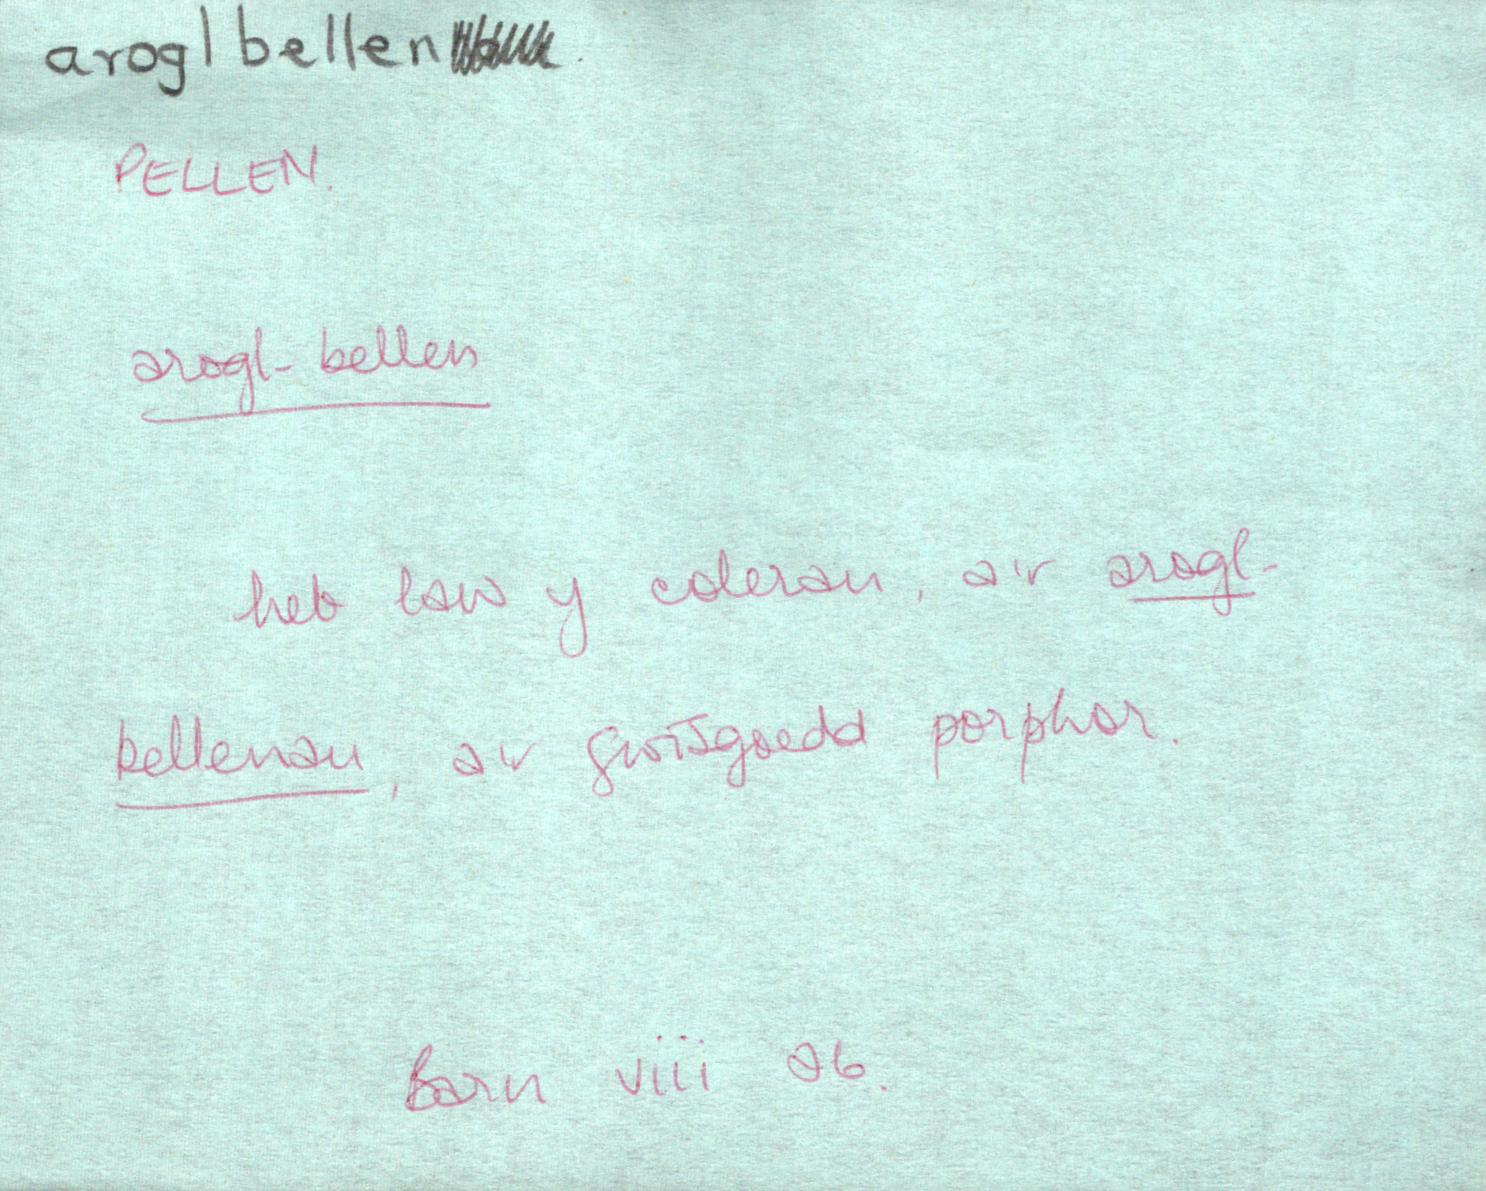 aroglbellen
PELLEN.
arogl-bellen
heb law y colerau, a'r arogl-
bellenau, a'r gwisgoedd porphor.
Barn viii 26.